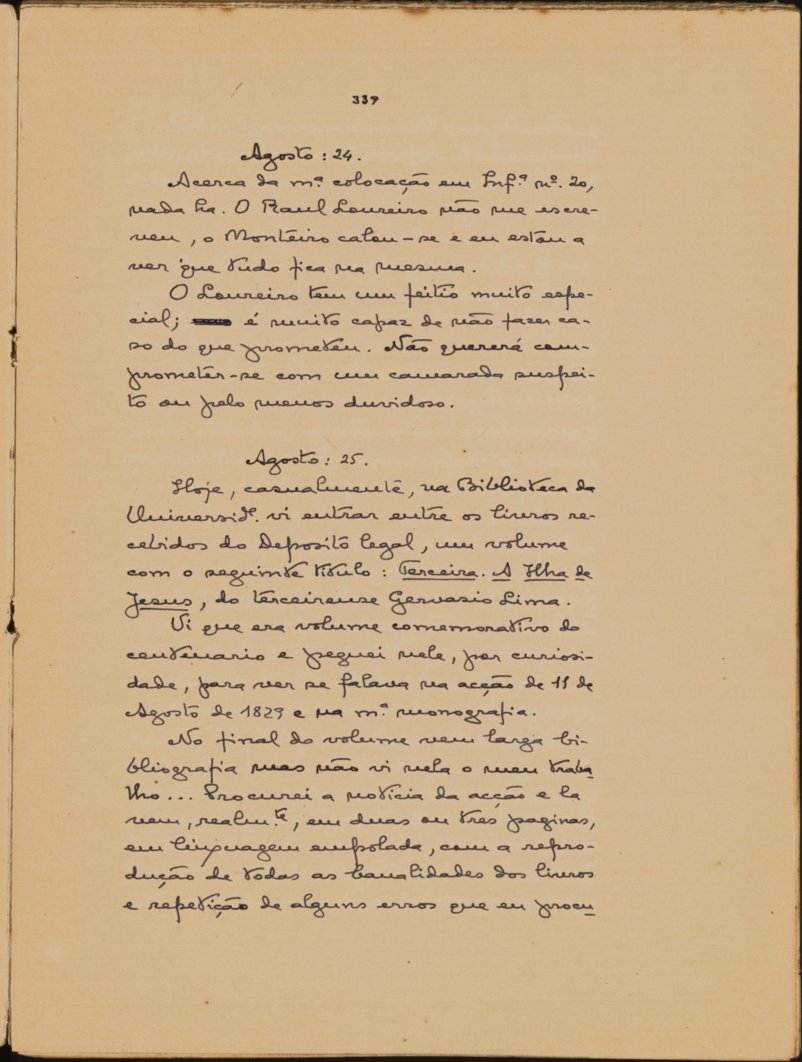 339
Agosto : 24.
Acerca da m.ª colocação em Inf.ª nº. 20,
nada ha. O Raul Loureiro não me escre-
veu, o Monteiro calou-se e eu estou a
ver que tudo fica na mesma.
O Loureiro tem um feitio muito espe-
cial; é muito capaz de não fazer ca-
so do que prometeu. Não quererá com-
prometer-se com um camarada suspei-
to ou pelo menos duvidoso.
Agosto : 25.
Hoje, casualmente, na Biblioteca da
Universid.e vi entrar entre os livros re-
cebidos do Deposito legal, um volume
com o seguinte titulo : Terceira. A Ilha de
Jesus, do terceirense Gervasio Lima.
Vi que era volume comemorativo do
centenario e peguei nele, por curiosi-
dade, para ver se falava na acção de 11 de
Agosto de 1829 e na m.ª monografia.
No final do volume vem larga bi-
bliografia mas não vi nela o meu traba-
lho... Procurei a noticia da acção e la
vem, realm.te, em duas ou tres paginas,
em linguagem empolada, com a repro-
dução de todas as banalidades dos livros
e repetição de alguns erros que eu procu-